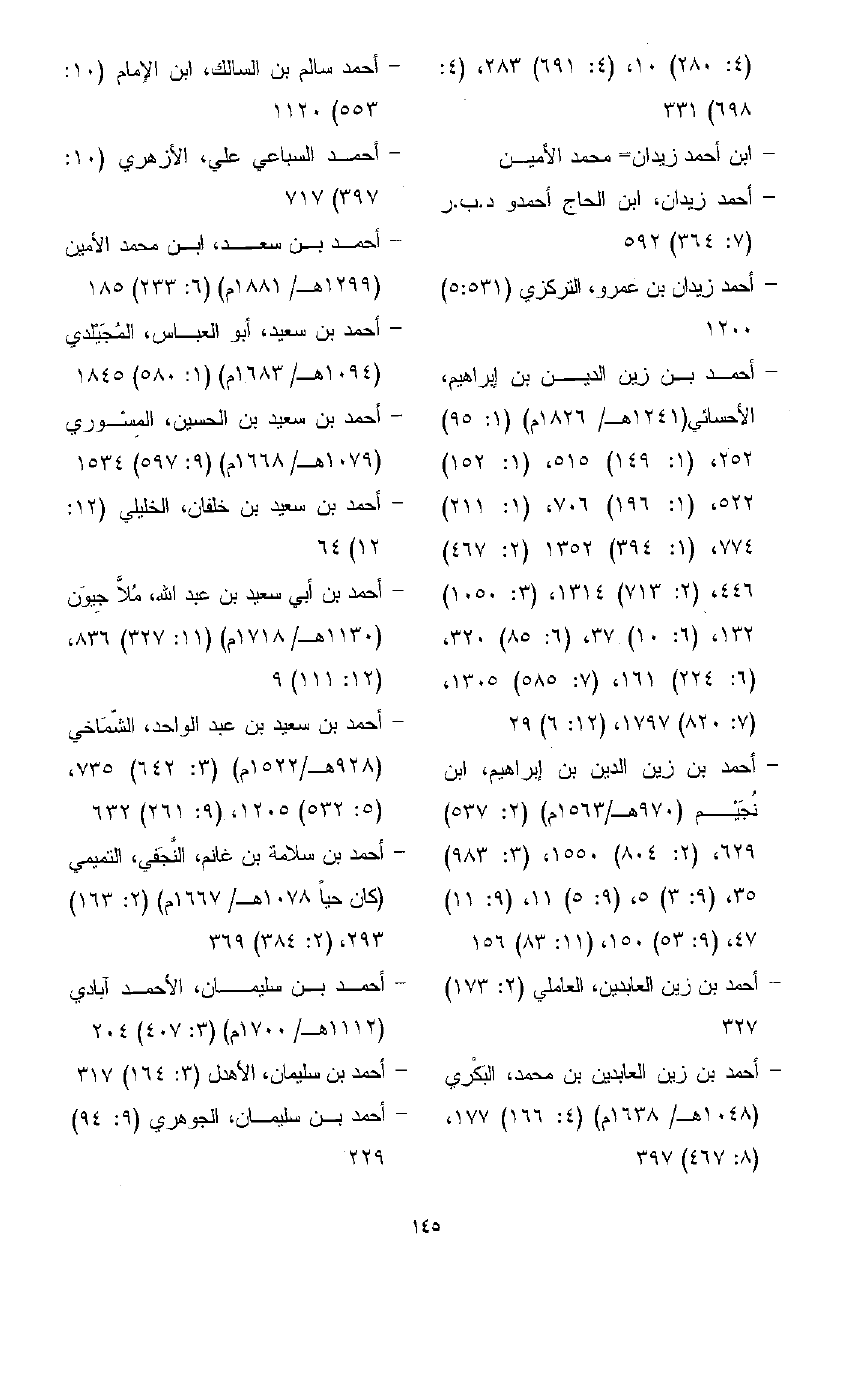 (٤: ٢٨٠) ١٠، (٤: ٦٩١) ٢٨٣، (٤:
٦٩٨) ٣٣١
- ابن أحمد زيدان= محمد الأميـن
- أحمد زيدان، ابن الحاج أحمدو د.ب.ر
(٧: ٣٦٤) ٥٩٢
- أحمد زيدان بن عمرو، التركزي (٥:٥٣١)
١٢٠٠
- أحمـد بـن زين الديـن بن إبراهيم،
الأحسائي(١٢٤١هـ/ ١٨٢٦م) (١: ٩٥)
٢٥٢، (١: ١٤٩) ٥١٥، (١: ١٥٢)
٥٢٢، (١: ١٩٦) ٧٠٦، (١: ٢١١)
٧٧٤، (١: ٣٩٤) ١٣٥٢ (٢: ٤٦٧)
٤٤٦، (٢: ٧١٣) ١٣١٤، (٣: ١٠٥٠)
١٣٢، (٦: ١٠) ٣٧، (٦: ٨٥) ٣٢٠،
(٦: ٢٢٤) ١٦١، (٧: ٥٨٥) ١٣٠٥،
(٧: ٨٢٠) ١٧٩٧، (١٢: ٦) ٢٩
- أحمد بن زين الدين بن إبراهيم، ابن
نُجَيْـم (٩٧٠هـ/١٥٦٣م) (٢: ٥٣٧)
٦٢٩، (٢: ٨٠٤) ١٥٥٠، (٣: ٩٨٣)
٣٥، (٩: ٣) ٥، (٩: ٥) ١١، (٩: ١١)
٤٧، (٩: ٥٣) ١٥٠، (١١: ٨٣) ١٥٦
- أحمد بن زين العابدين، العاملي (٢: ١٧٣)
٣٢٧
- أحمد بن زين العابدين بن محمد، البَكْري
(١٠٤٨هـ/ ١٦٣٨م) (٤: ١٦٦) ١٧٧،
(٨: ٤٦٧) ٣٩٧
- أحمد سالم بن السالك، ابن الإمام (١٠:
٥٥٣) ١١٢٠
- أحمـد السباعي علي، الأزهري (١٠:
٣٩٧) ٧١٧
- أحمـد بـن سعـد، ابـن محمد الأمين
(١٢٩٩هـ/ ١٨٨١م) (٦: ٢٣٣) ١٨٥
- أحمد بن سعيد، أبو العبـاس، المُجَيْلدي
(١٠٩٤هـ/ ١٦٨٣م) (١: ٥٨٠) ١٨٤٥
- أحمد بن سعيد بن الحسين، المِسْـوري
(١٠٧٩هـ/ ١٦٦٨م) (٩: ٥٩٧) ١٥٣٤
- أحمد بن سعيد بن خلفان، الخليلي (١٢:
١٢) ٦٤
- أحمد بن أبي سعيد بن عبد الله، مُلاَّ جِيوَن
(١١٣٠هـ/ ١٧١٨م) (١١: ٣٢٧) ٨٣٦،
(١٢: ١١١) ٩
- أحمد بن سعيد بن عبد الواحد، الشَّمَاخي
(٩٢٨هـ/١٥٢٢م) (٣: ٦٤٢) ٧٣٥،
(٥: ٥٣٢) ١٢٠٥، (٩: ٢٦١) ٦٣٢
- أحمد بن سلامة بن غانم، النَّجَفي، التميمي
(كان حياً ١٠٧٨هـ/ ١٦٦٧م) (٢: ١٦٣)
٢٩٣، (٢: ٣٨٤) ٣٦٩
- أحمـد بـن سليمـان، الأحمـد آبادي
(١١١٢هـ/ ١٧٠٠م) (٣: ٤٠٧) ٢٠٤
- أحمد بن سليمان، الأهدل (٣: ١٦٤) ٣١٧
- أحمد بـن سليمـان، الجوهري (٩: ٩٤)
٢٢٩
١٤٥